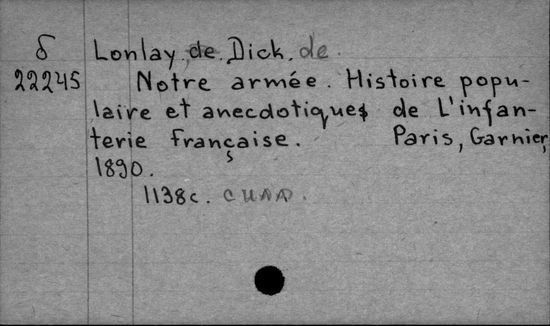 δ Lonlay, de Dick, de.
22245 Notre armée. Histoire popu-
laire et anecdotiques de L'infan-
terie française. Paris, Garnier,
1890.
1138с. слав.